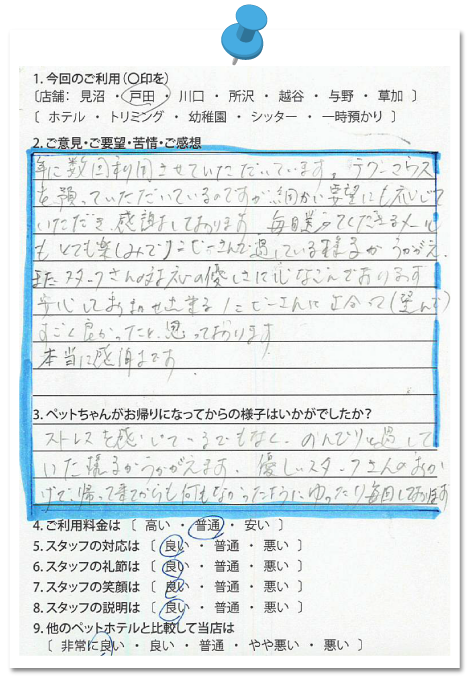 1. 今回のご利用(〇印を)
〔店舗: 見沼 ・ 戸田 ・ 川口 ・ 所沢 ・ 越谷 ・ 与野 ・ 草加 〕
〔 ホテル ・ トリミング ・ 幼稚園 ・ シッター ・ 一時預かり 〕
2. ご意見・ご要望・苦情・ご感想
年に数回利用させていただいています。
を預っていただいているのですが、細かい要望にも応じて
いただき、感謝しております 毎日送ってくださるメール
もとても楽しみで、ビーさんで過している様子がうかがえ、
またスタッフさんの対応の優しさに心なごんでおります
安心しておまかせ出来る ビーさんに出合って(望んで)
すごく良かったと思っております
本当に感謝です
3. ペットちゃんがお帰りになってからの様子はいかがでしたか?
ストレスを感じているでもなく、のんびりと過して
いた様子がうかがえます、優しいスタッフさんのおか
げで、帰って来てからも何もなかったようにゆったり毎回しております
4. ご利用料金は 〔 高い ・ 普通 ・ 安い 〕
5. スタッフの対応は 〔 良い ・ 普通 ・ 悪い 〕
6. スタッフの礼節は 〔 良い ・ 普通 ・ 悪い 〕
7. スタッフの笑顔は 〔 良い ・ 普通 ・ 悪い 〕
8. スタッフの説明は 〔 良い ・ 普通 ・ 悪い 〕
9. 他のペットホテルと比較して当店は
〔 非常に良い ・ 良い ・ 普通 ・ やや悪い ・ 悪い 〕